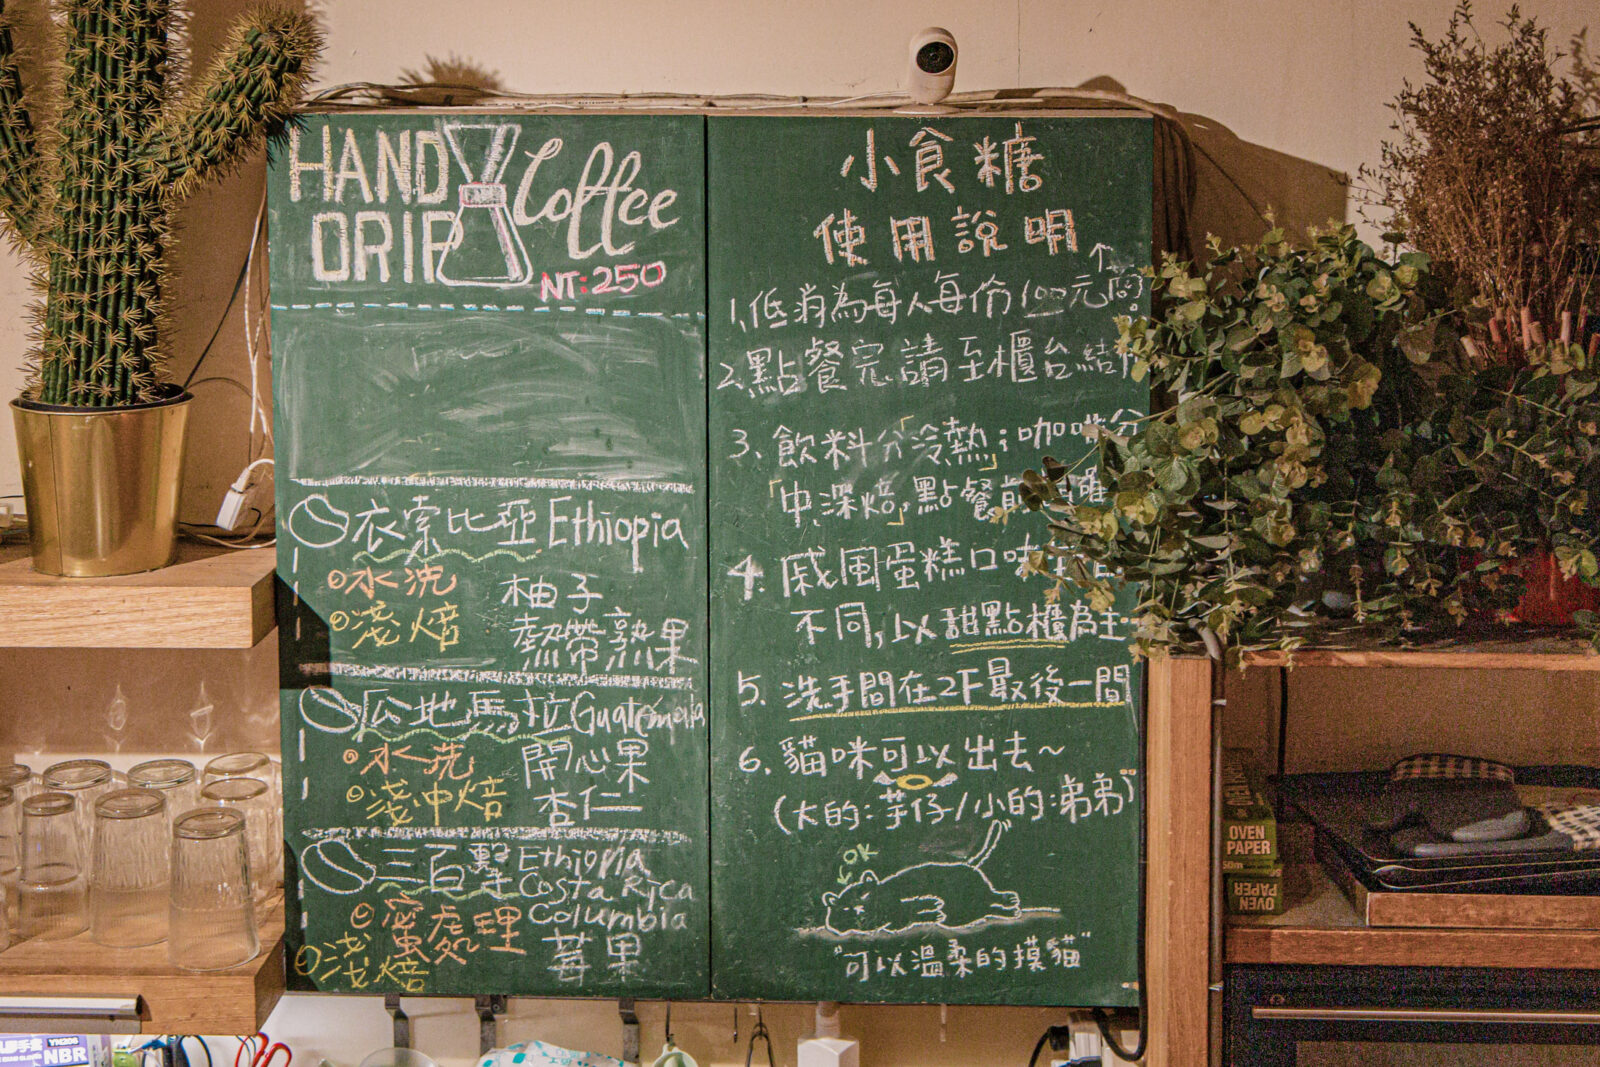 HAND
DRIP
Coffee
NT:250
衣索比亞 Ethiopia
水洗
淺焙
柚子
熱帶熟果
瓜地馬拉 Guatemala
水洗
淺中焙
開心果
杏仁
三百擊 Ethiopia
Costa Rica
Columbia
蜜處理
淺焙
莓果
小食糖
使用說明
1.低消為每人每份100元
2.點餐完請至櫃台結
3.飲料分「冷熱」;咖啡分
「中深焙」,點餐前
4.戚風蛋糕口味
不同,以甜點櫃為主
5.洗手間在2F最後一間
6.貓咪可以出去~
(大的:芋仔/小的:弟弟)
OK
"可以溫柔的摸貓"
OVEN
PAPER
50m
OVEN
PAPER
YN206
NBR